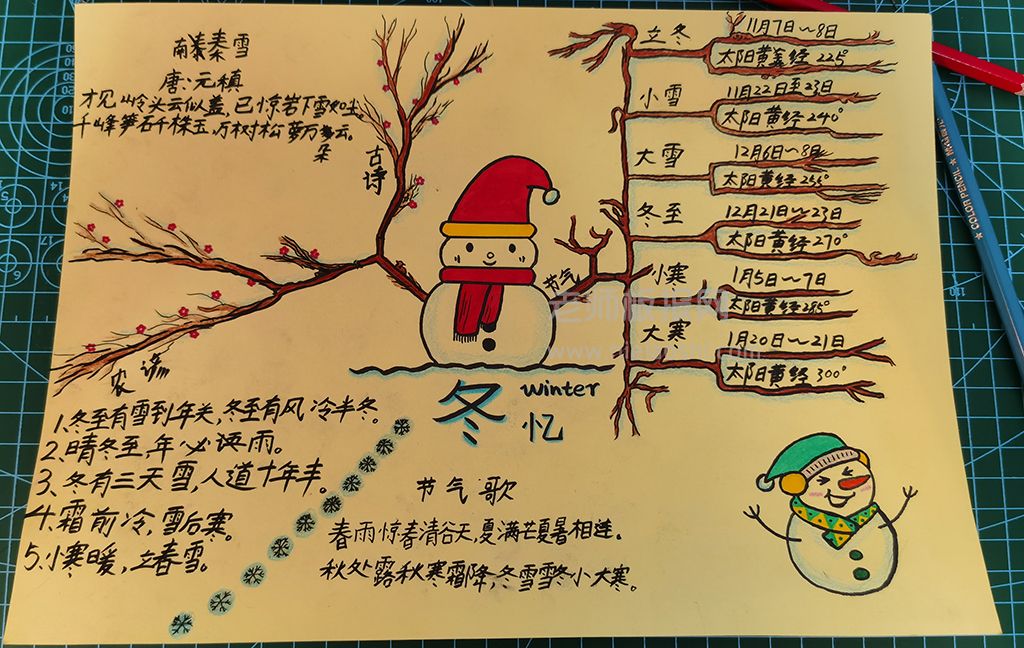 南秦雪
唐：元稹
才见岭头云似盖，已惊岩下雪如尘。
千峰笋石千株玉，万树松萝万朵云。
古诗
农谚
节气
立冬
11月7日～8日
太阳黄经225°
小雪
11月22日至23日
太阳黄经240°
大雪
12月6日～8日
太阳黄经255°
冬至
12月21日～23日
太阳黄经270°
小寒
1月5日～7日
太阳黄经285°
大寒
1月20日～21日
太阳黄经300°
冬忆
winter
1、冬至有雪到年关，冬至有风冷半冬。
2、晴冬至，年必雨。
3、冬有三天雪，人道十年丰。
4、霜前冷，雪后寒。
5、小寒暖，立春雪。
节气歌
春雨惊春清谷天，夏满芒夏暑相连。
秋处露秋寒霜降，冬雪雪冬小大寒。
COLOR PENCIL